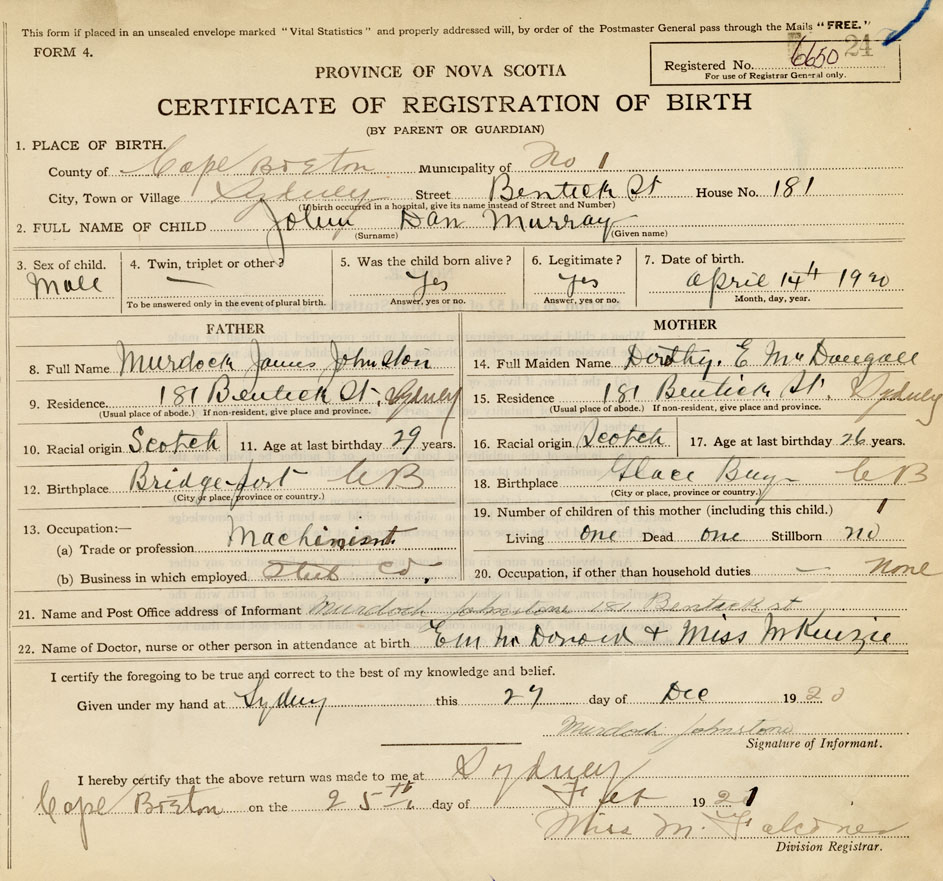 This form if placed in an unsealed envelope marked "Vital Statistics" and properly addressed will, by order of the Postmaster General pass through the Mails "FREE."
FORM 4.
24
Registered No. 6650
For use of Registrar General only.
PROVINCE OF NOVA SCOTIA
CERTIFICATE OF REGISTRATION OF BIRTH
(BY PARENT OR GUARDIAN)
1. PLACE OF BIRTH.
County of Cape Breton Municipality of No 1
City, Town or Village Sydney Street Bentick St House No. 181
(If birth occurred in a hospital, give its name instead of Street and Number)
2. FULL NAME OF CHILD John Dan Murray
(Surname) (Given name)
3. Sex of child. Male
4. Twin, triplet or other? —
To be answered only in the event of plural birth.
5. Was the child born alive? Yes
Answer, yes or no.
6. Legitimate? Yes
Answer, yes or no.
7. Date of birth. April 14th 1920
Month, day, year.
FATHER
8. Full Name Murdock James Johnston
9. Residence. 181 Bentick St. Sydney
(Usual place of abode.) If non-resident, give place and province.
10. Racial origin Scotch 11. Age at last birthday 29 years.
12. Birthplace Bridgeport CB
(City or place, province or country.)
13. Occupation:—
(a) Trade or profession Machinisnt.
(b) Business in which employed Steel Co.
MOTHER
14. Full Maiden Name Dorthy. E McDougall
15. Residence 181 Bentick St. Sydney
(Usual place of abode.) If non-resident, give place and province.
16. Racial origin Scotch 17. Age at last birthday 26 years.
18. Birthplace Glace Bay CB
(City or place, province or country.)
19. Number of children of this mother (including this child.) 1
Living one Dead one Stillborn no
20. Occupation, if other than household duties — None
21. Name and Post Office address of Informant Murdoch Johnstone 181 Bentack st
22. Name of Doctor, nurse or other person in attendance at birth McDonald + Miss McKenzie
I certify the foregoing to be true and correct to the best of my knowledge and belief.
Given under my hand at Sydney this 27 day of Dec 1920
Murdoch Johnstone
Signature of Informant.
I hereby certify that the above return was made to me at Sydney
Cape Breton on the 25th day of Feb 1921
Miss M. Falconer
Division Registrar.